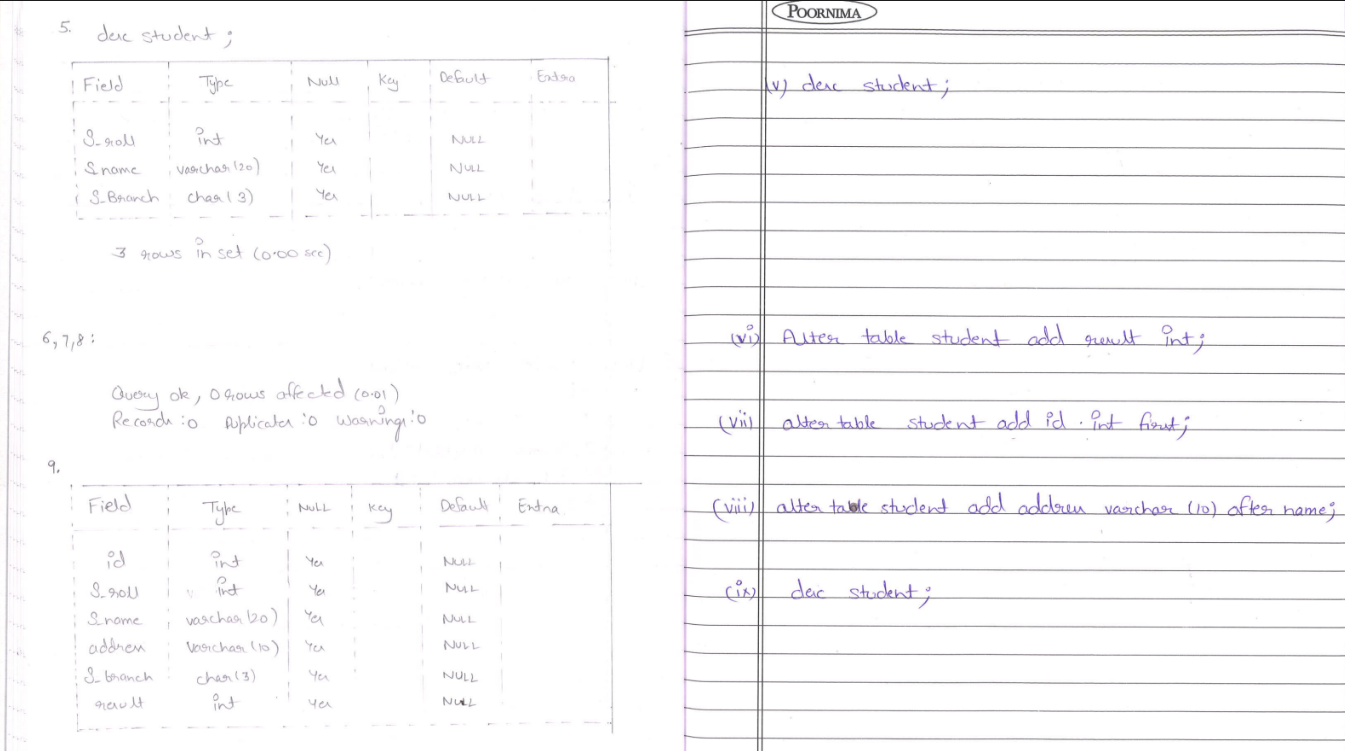 5. desc student;
Field Type Null Key Default Extra
S_roll int Yes NULL
S_name varchar(20) Yes NULL
S_Branch char(3) Yes NULL
3 rows in set (0.00 sec)
6,7,8:
Query ok, 0 rows affected (0.01)
Records:0 Duplicates:0 Warnings:0
9.
Field Type NULL Key Default Extra
id int Yes NULL
S_roll int Yes NULL
S_name varchar(20) Yes NULL
address varchar(10) Yes NULL
S_branch char(3) Yes NULL
result int Yes NULL
POORNIMA
(v) desc student;
(vi) Alter table student add result int;
(vii) alter table student add id int first;
(viii) alter table student add address varchar (10) after name;
(ix) desc student;